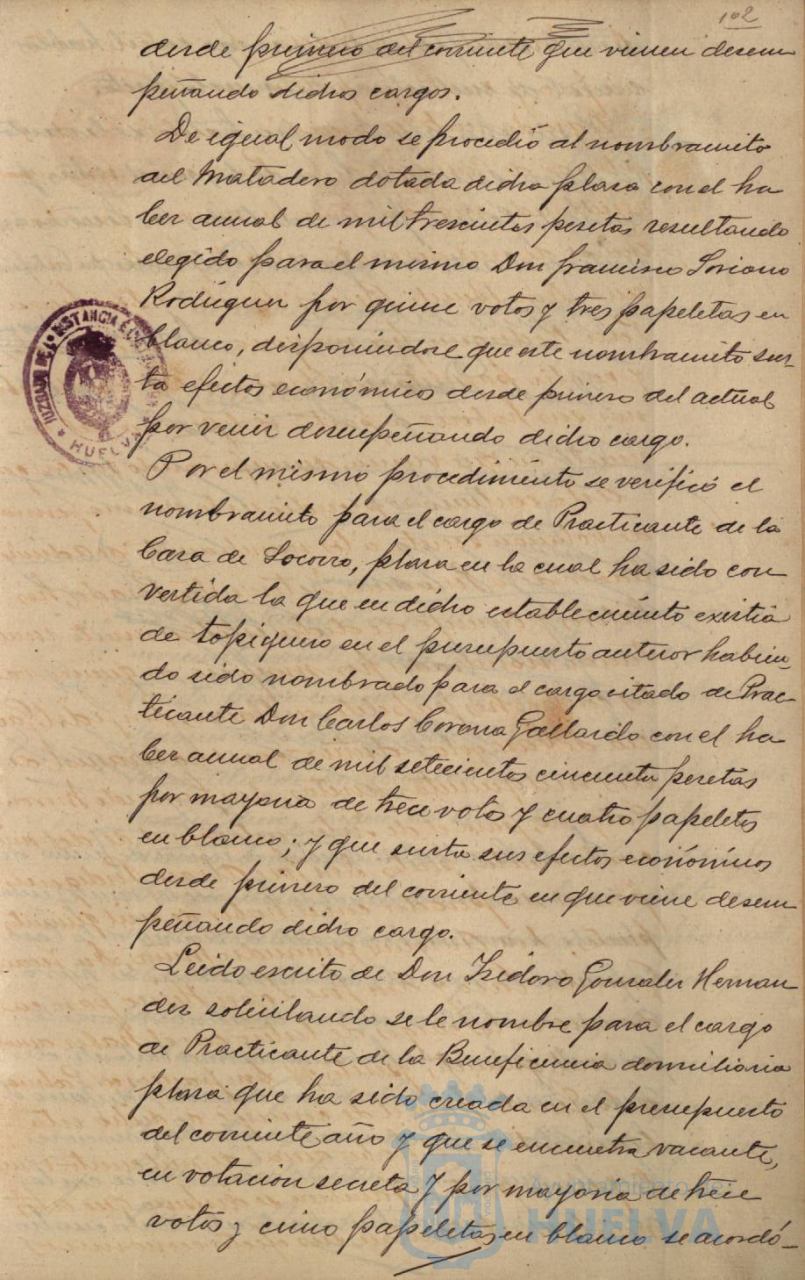 102
desde primero del corriente que vienen desem
peñando dichos cargos.
De igual modo se procedió al nombramiento
del Matadero dotada dicha plasa con el ha
ber anual de mil trescientas pesetas resultando
elegido para el mismo Don Francisco Soriano
Rodríguez por quince votos y tres papeletas en
blanco, disponiendose que este nombramiento sur-
ta efectos económicos desde primero del actual
por venir desempeñando dicho cargo.
Por el mismo procedimiento se verificó el
nombramiento para el cargo de Practicante de la
Casa de Socorro, plasa en la cual ha sido con
vertida la que en dicho establecimiento existia
de topiquero en el presupuesto anterior habien-
do sido nombrado para el cargo citado de Prac-
ticante Don Carlos Corona Gallardo con el ha
ber anual de mil setecientos cincuenta pesetas
por mayoria de trece votos y cuatro papeletas
en blanco; y que surta sus efectos económicos
desde primero del corriente en que viene desem
peñando dicho cargo.
Leido escrito de Don Isidoro Gonzalez Hernan
dez solicitando se le nombre para el cargo
de Practicante de la Beneficencia domiciliaria
plasa que ha sido creada en el presupuesto
del corriente año y que se encuentra vacante,
en votacion secreta y por mayoria de trece
votos y cinco papeletas en blanco se acordó-
JUZGADO DE 1ª INSTANCIA E
HUELVA
Ayuntamiento de
HUELVA